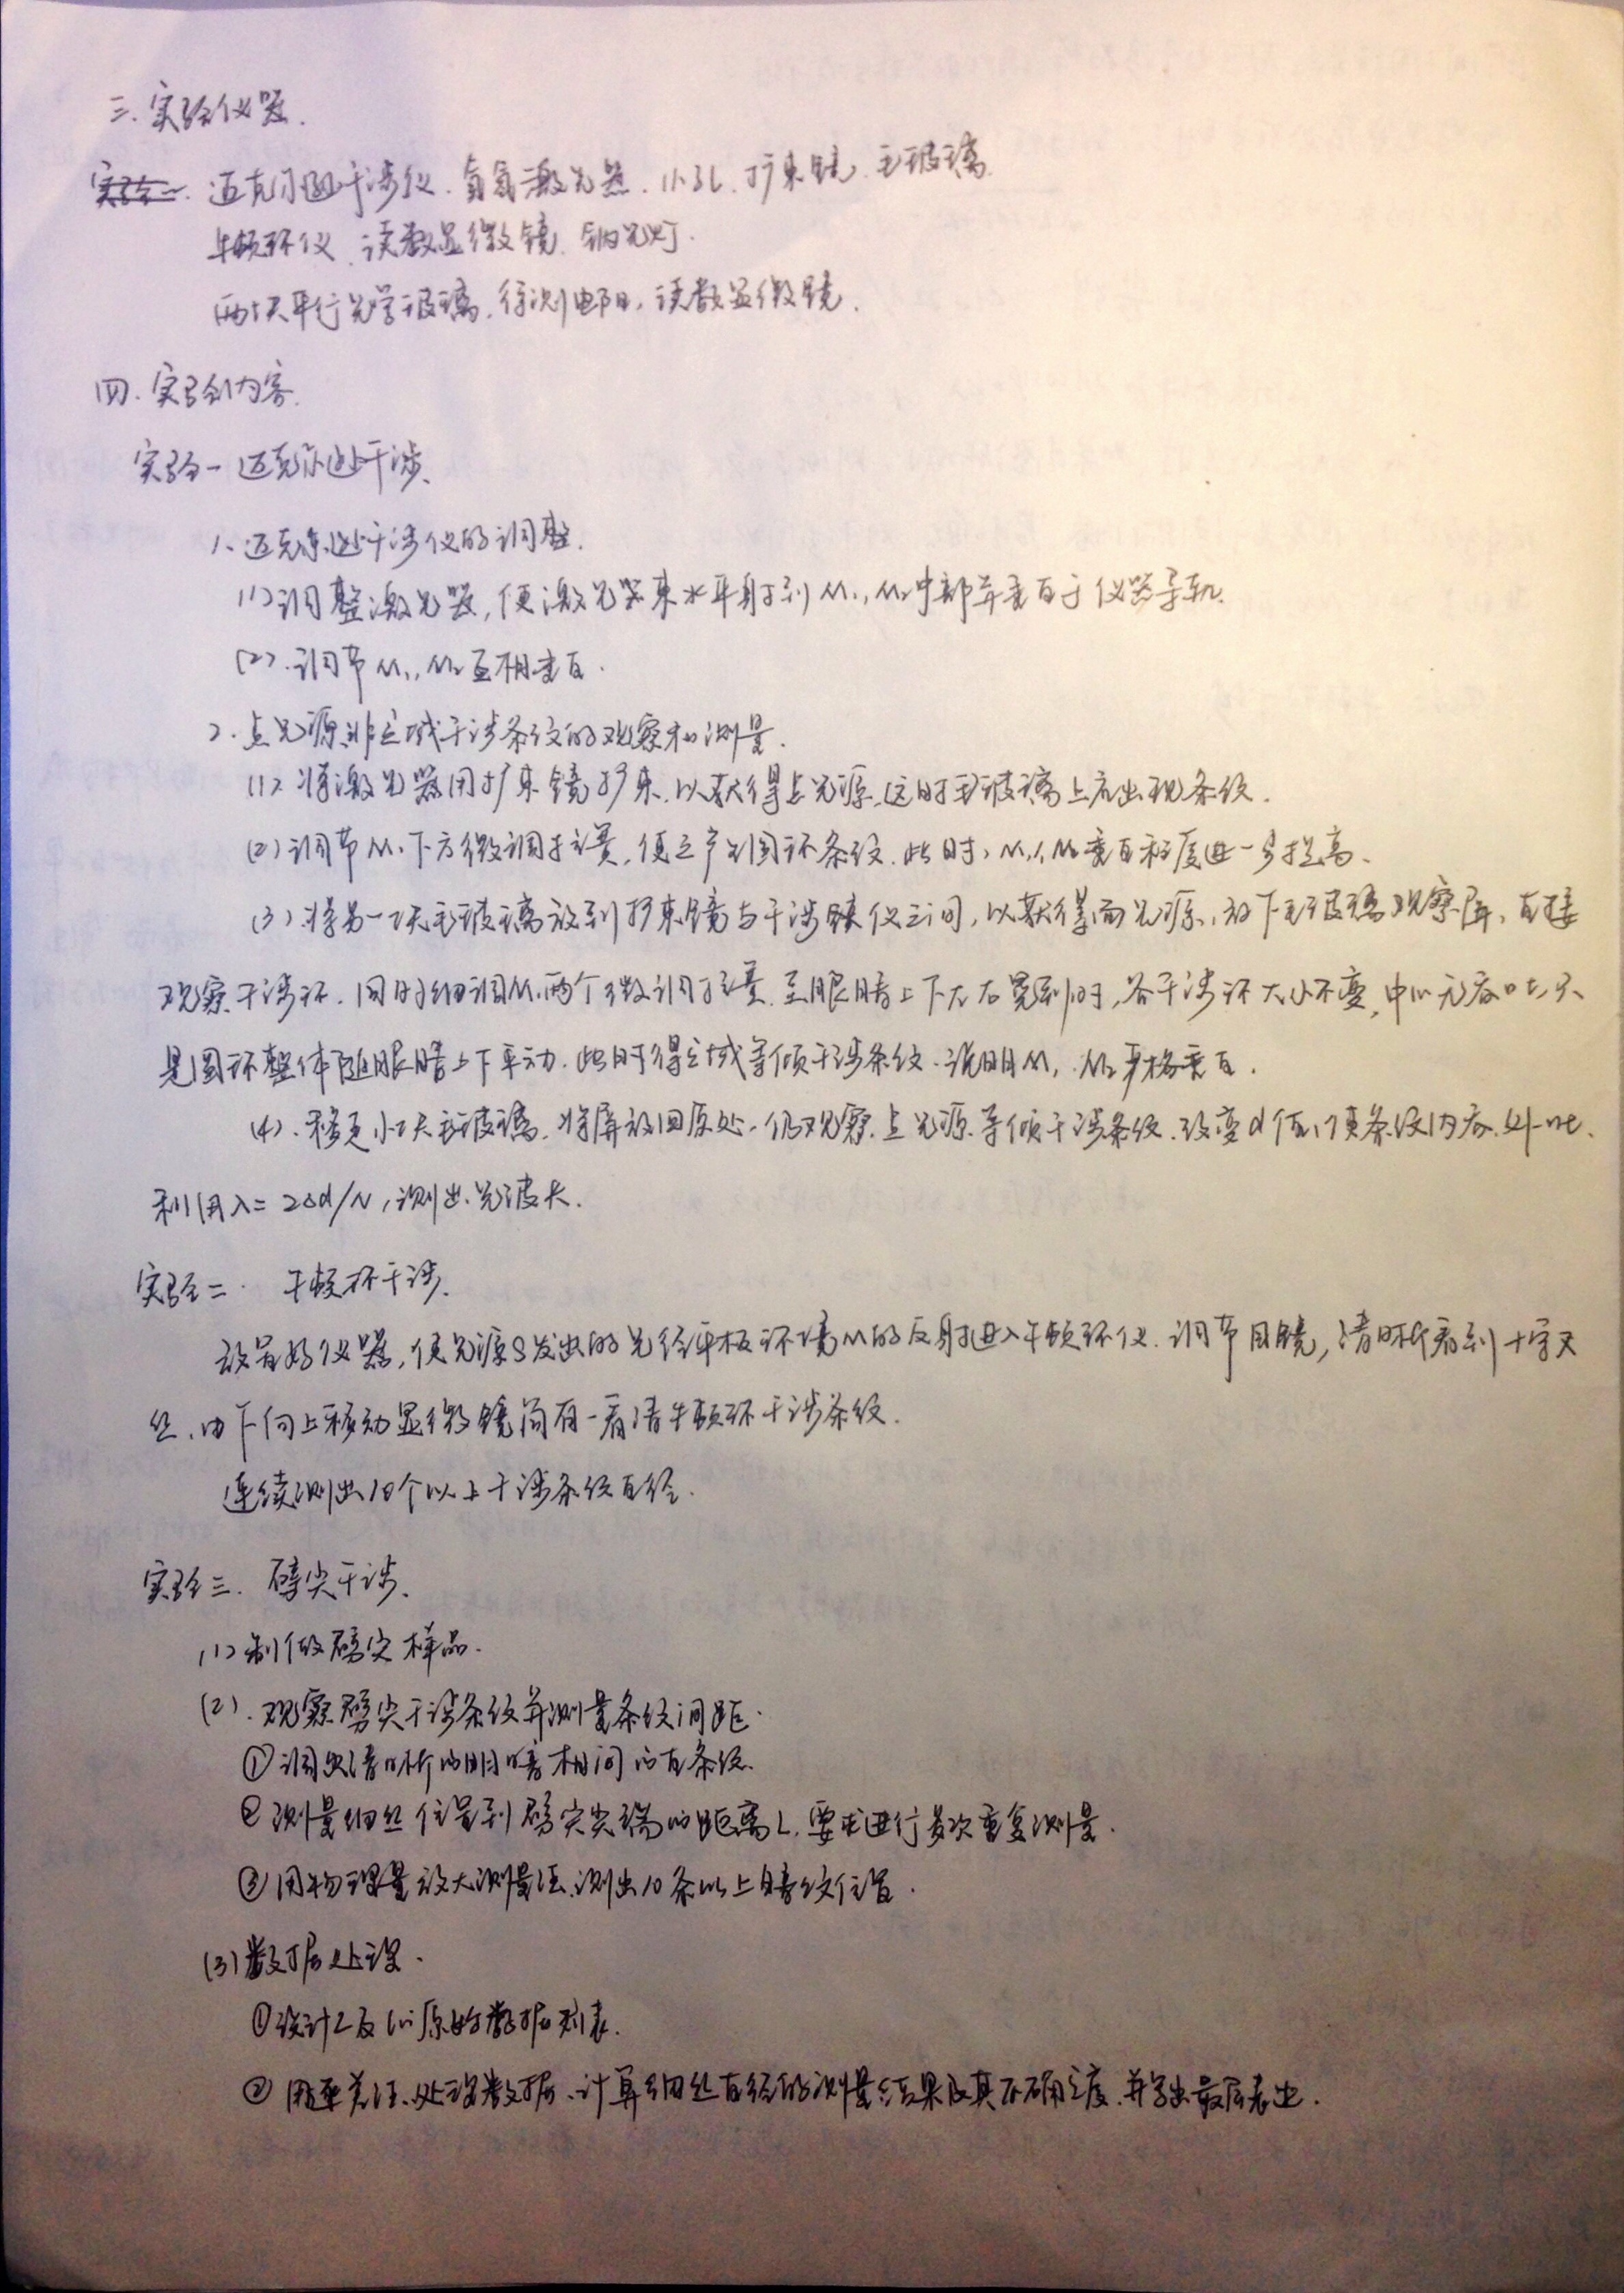 三.实验仪器.
实验一. 迈克尔逊干涉仪.氦氖激光器.小孔.扩束镜.毛玻璃.
牛顿环仪.读数显微镜.钠光灯.
两块平行光学玻璃.待测,读数显微镜.
四.实验内容.
实验一 迈克尔逊干涉.
1、迈克尔逊干涉仪的调整.
(1)调整激光器,使激光器束水平射到M₁,M₂中部并垂直于仪器导轨.
(2).调节M₁,M₂互相垂直.
2.点光源非定域干涉条纹的观察和测量.
(1)将激光器用扩束镜扩束,以获得点光源,这时毛玻璃上应出现条纹.
(2)调节M₁下方微调拉簧,使之产生圆环条纹.此时,M₁,M₂垂直程度进一步提高.
(3).将另一块毛玻璃放到扩束镜与干涉仪之间,以获得面光源,放下毛玻璃观察屏,直接
观察干涉环.同时细调M₁两个微调拉簧.至眼睛上下左右晃动时,各干涉环大小不变,中心无吞吐,只
是圆环整体随眼睛上下平动.此时得定域等倾干涉条纹.说明M₁,M₂严格垂直.
(4).移走小块毛玻璃.将屏放回原处,仍观察点光源等倾干涉条纹.改变d值,使条纹内吞.外吐.
利用λ=2Δd/N,测出光波长.
实验二. 牛顿环干涉.
放置好仪器,使光源S发出的光经平板环境M的反射进入牛顿环仪.调节目镜,清晰看到十字叉
丝.由下向上移动显微镜筒看清牛顿环干涉条纹.
连续测出10个以上干涉条纹直径.
实验三. 劈尖干涉.
(1)制做劈尖样品.
(2).观察劈尖干涉条纹并测量条纹间距.
①调出清晰的明暗相间的直条纹.
②测量细丝位置到劈尖尖端的距离L.要求进行多次重复测量.
③用物理量放大测量法,测出10条以上暗纹位置.
(3)数据处理.
①设计L及原始数据列表.
②用逐差法处理数据.计算细丝直径的测量结果及其不确定度.并写出最后表达.